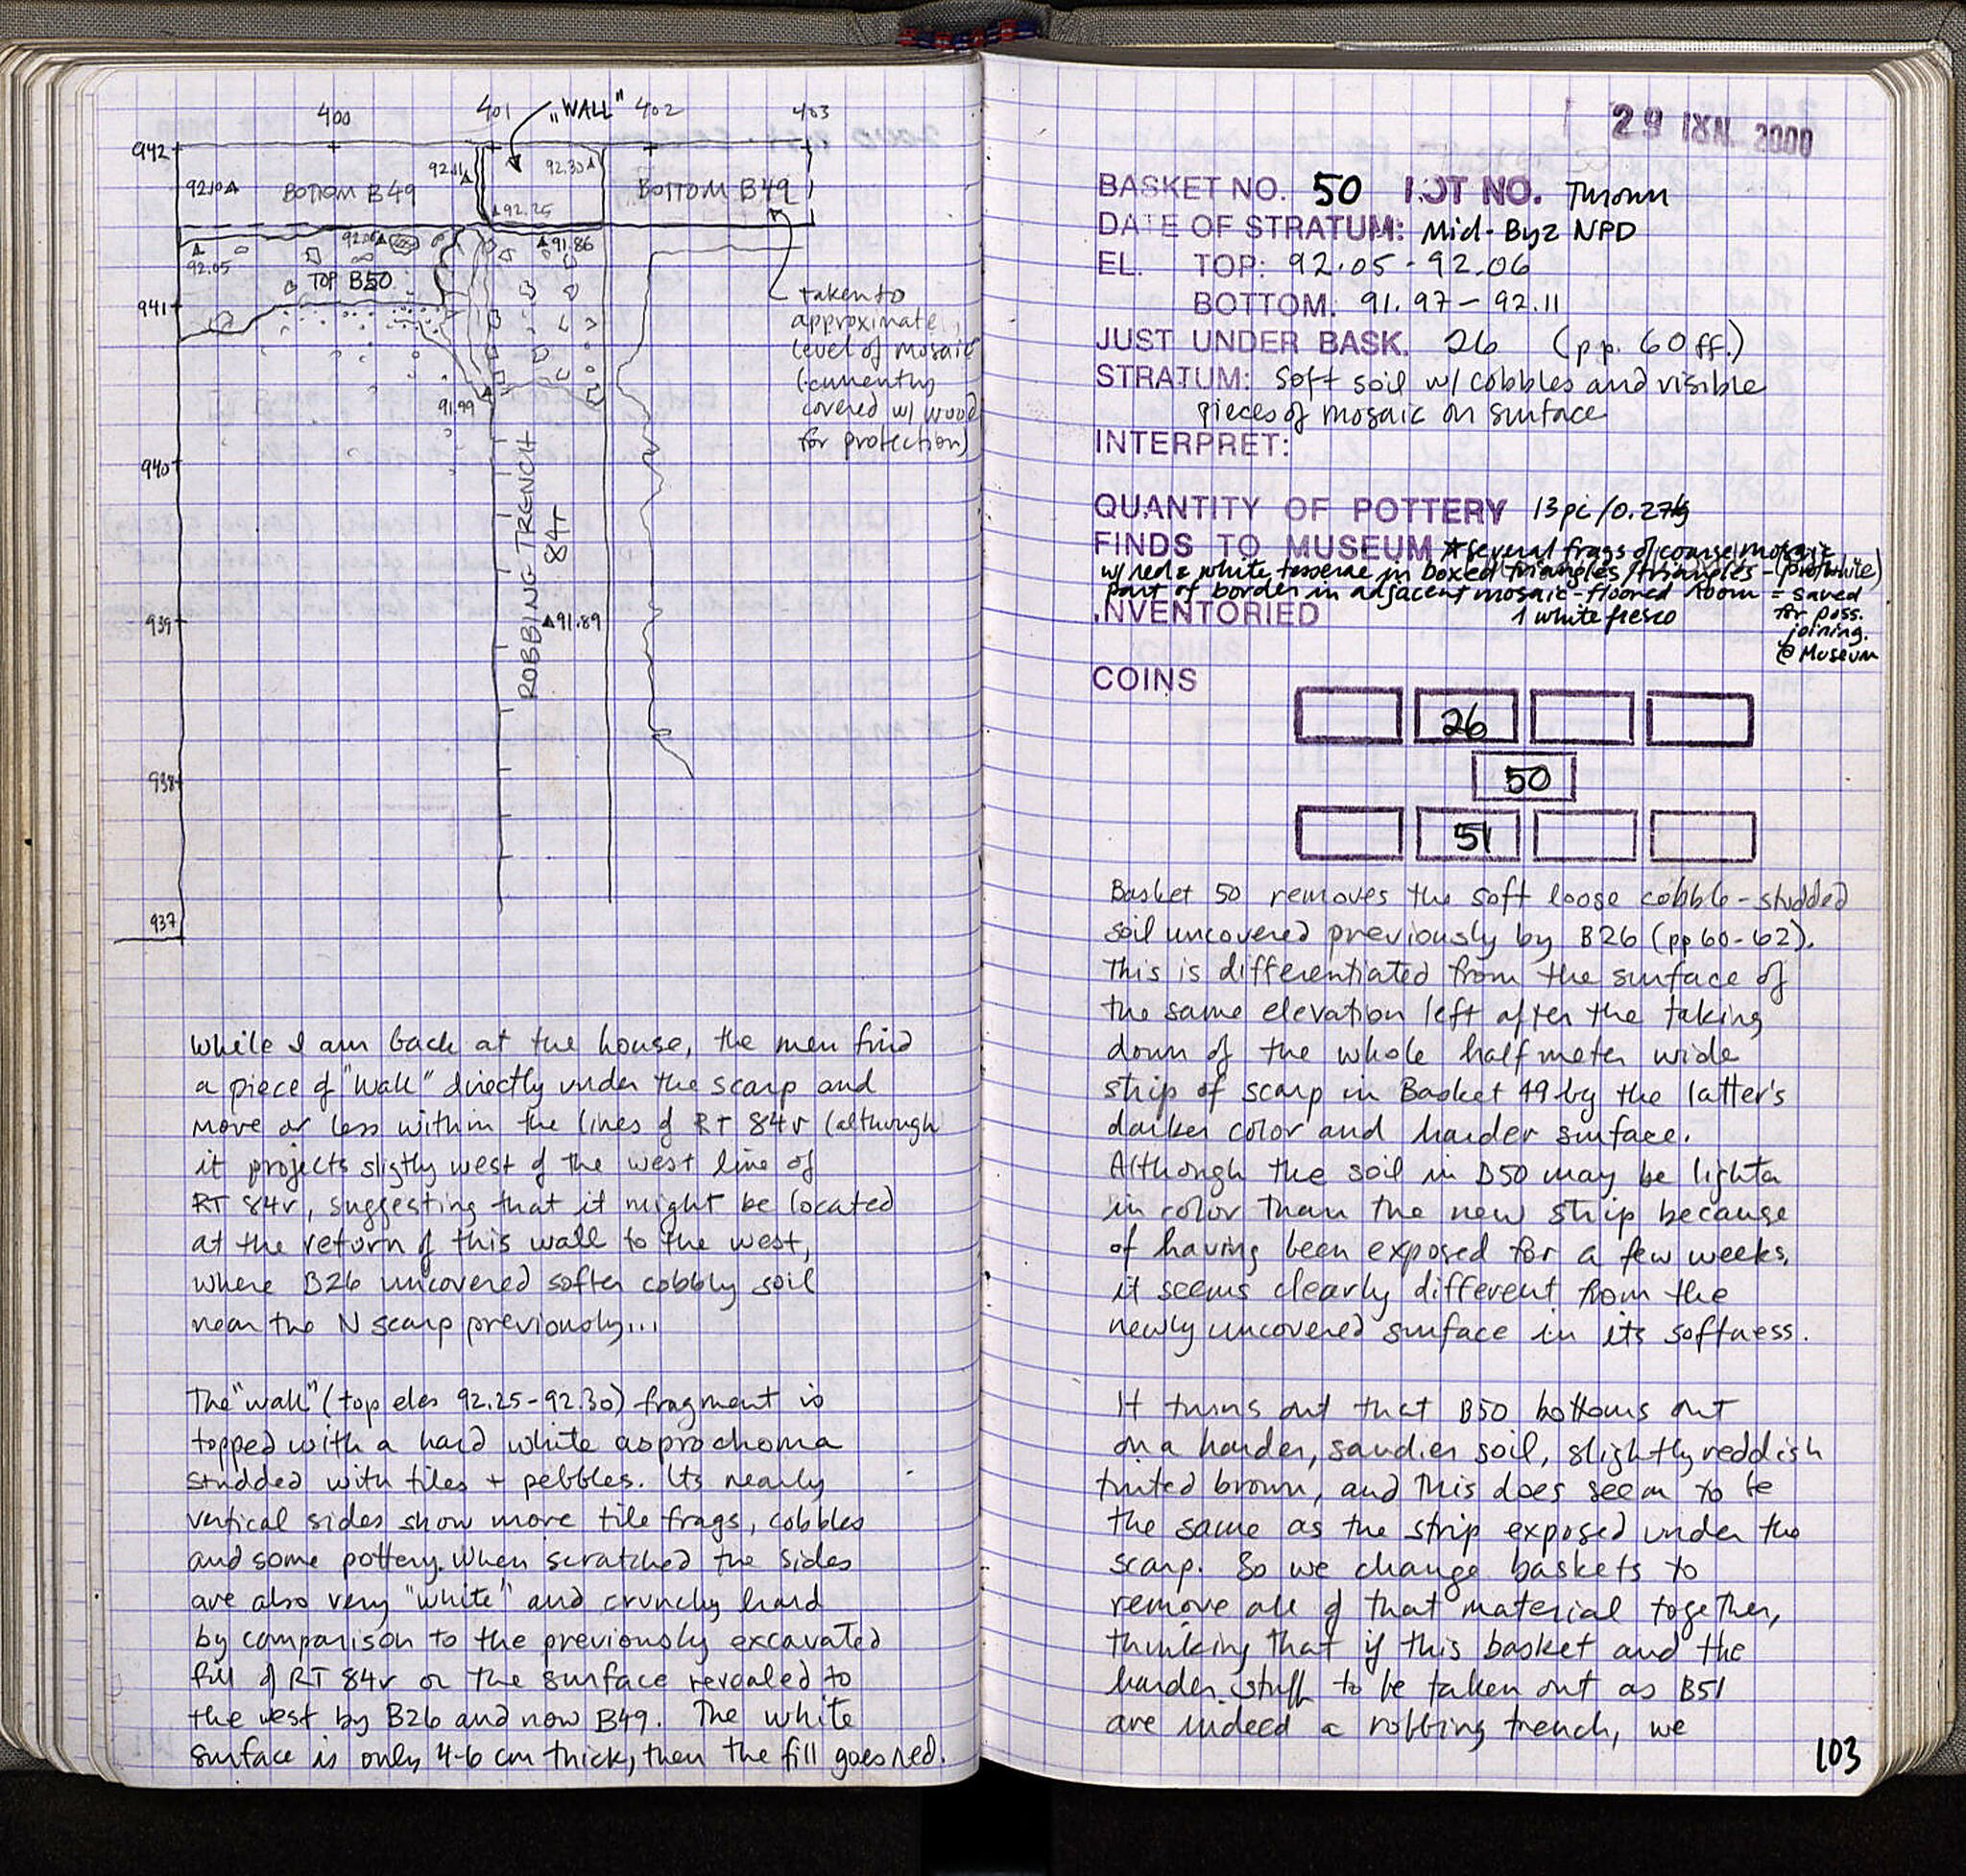 400 401 "WALL" 402 403
942
92.10 BOTTOM B49 92.11 92.30 BOTTOM B49
92.25
92.06 91.86
92.05 TOP B50
941
taken to
approximate
level of mosaic
(currently
covered w/ wood
for protection)
91.99
940
ROBBING TRENCH
84r
939 91.89
938
937
While I am back at the house, the men find
a piece of "wall" directly under the scarp and
more or less within the lines of RT 84r (although
it projects sligtly west of the west line of
RT 84r, suggesting that it might be located
at the return of this wall to the west,
where B26 uncovered softer cobbly soil
near the N scarp previously...
The "wall" (top elev 92.25-92.30) fragment is
topped with a hard white asprochoma
studded with tiles + pebbles. Its nearly
vertical sides show more tile frags, cobbles
and some pottery. When scratched the sides
are also very "white" and crunchy hard
by comparison to the previously excavated
fill of RT 84r or the surface revealed to
the west by B26 and now B49. The white
surface is only 4-6 cm thick, then the fill goes red.
29 ΙΟΥΝ. 2000
BASKET NO. 50 LOT NO. Thrown
DATE OF STRATUM: Mid-Byz NPD
EL. TOP: 92.05-92.06
BOTTOM: 91.97-92.11
JUST UNDER BASK. 26 (pp. 60 ff.)
STRATUM: soft soil w/ cobbles and visible
pieces of mosaic on surface
INTERPRET:
QUANTITY OF POTTERY 13pc/0.27kg
FINDS TO MUSEUM *several frags of coarse mosaic
w/ red & white tesserae in boxed triangles/triangles - (red/white)
part of border in adjacent mosaic-floored room = saved
for poss.
joining.
@ Museum
INVENTORIED 1 white fresco
COINS
26
50
51
Basket 50 removes the soft loose cobble-studded
soil uncovered previously by B26 (pp 60-62).
This is differentiated from the surface of
the same elevation left after the taking
down of the whole half meter wide
strip of scarp in Basket 49 by the latter's
darker color and harder surface.
Although the soil in B50 may be lighter
in color than the new strip because
of having been exposed for a few weeks,
it seems clearly different from the
newly uncovered surface in its softness.
It turns out that B50 bottoms out
on a harder, sandier soil, slightly reddish
tinted brown, and this does seem to be
the same as the strip exposed under the
scarp. So we change baskets to
remove all of that material together,
thinking that if this basket and the
harder stuff to be taken out as B51
are indeed a robbing trench, we
103